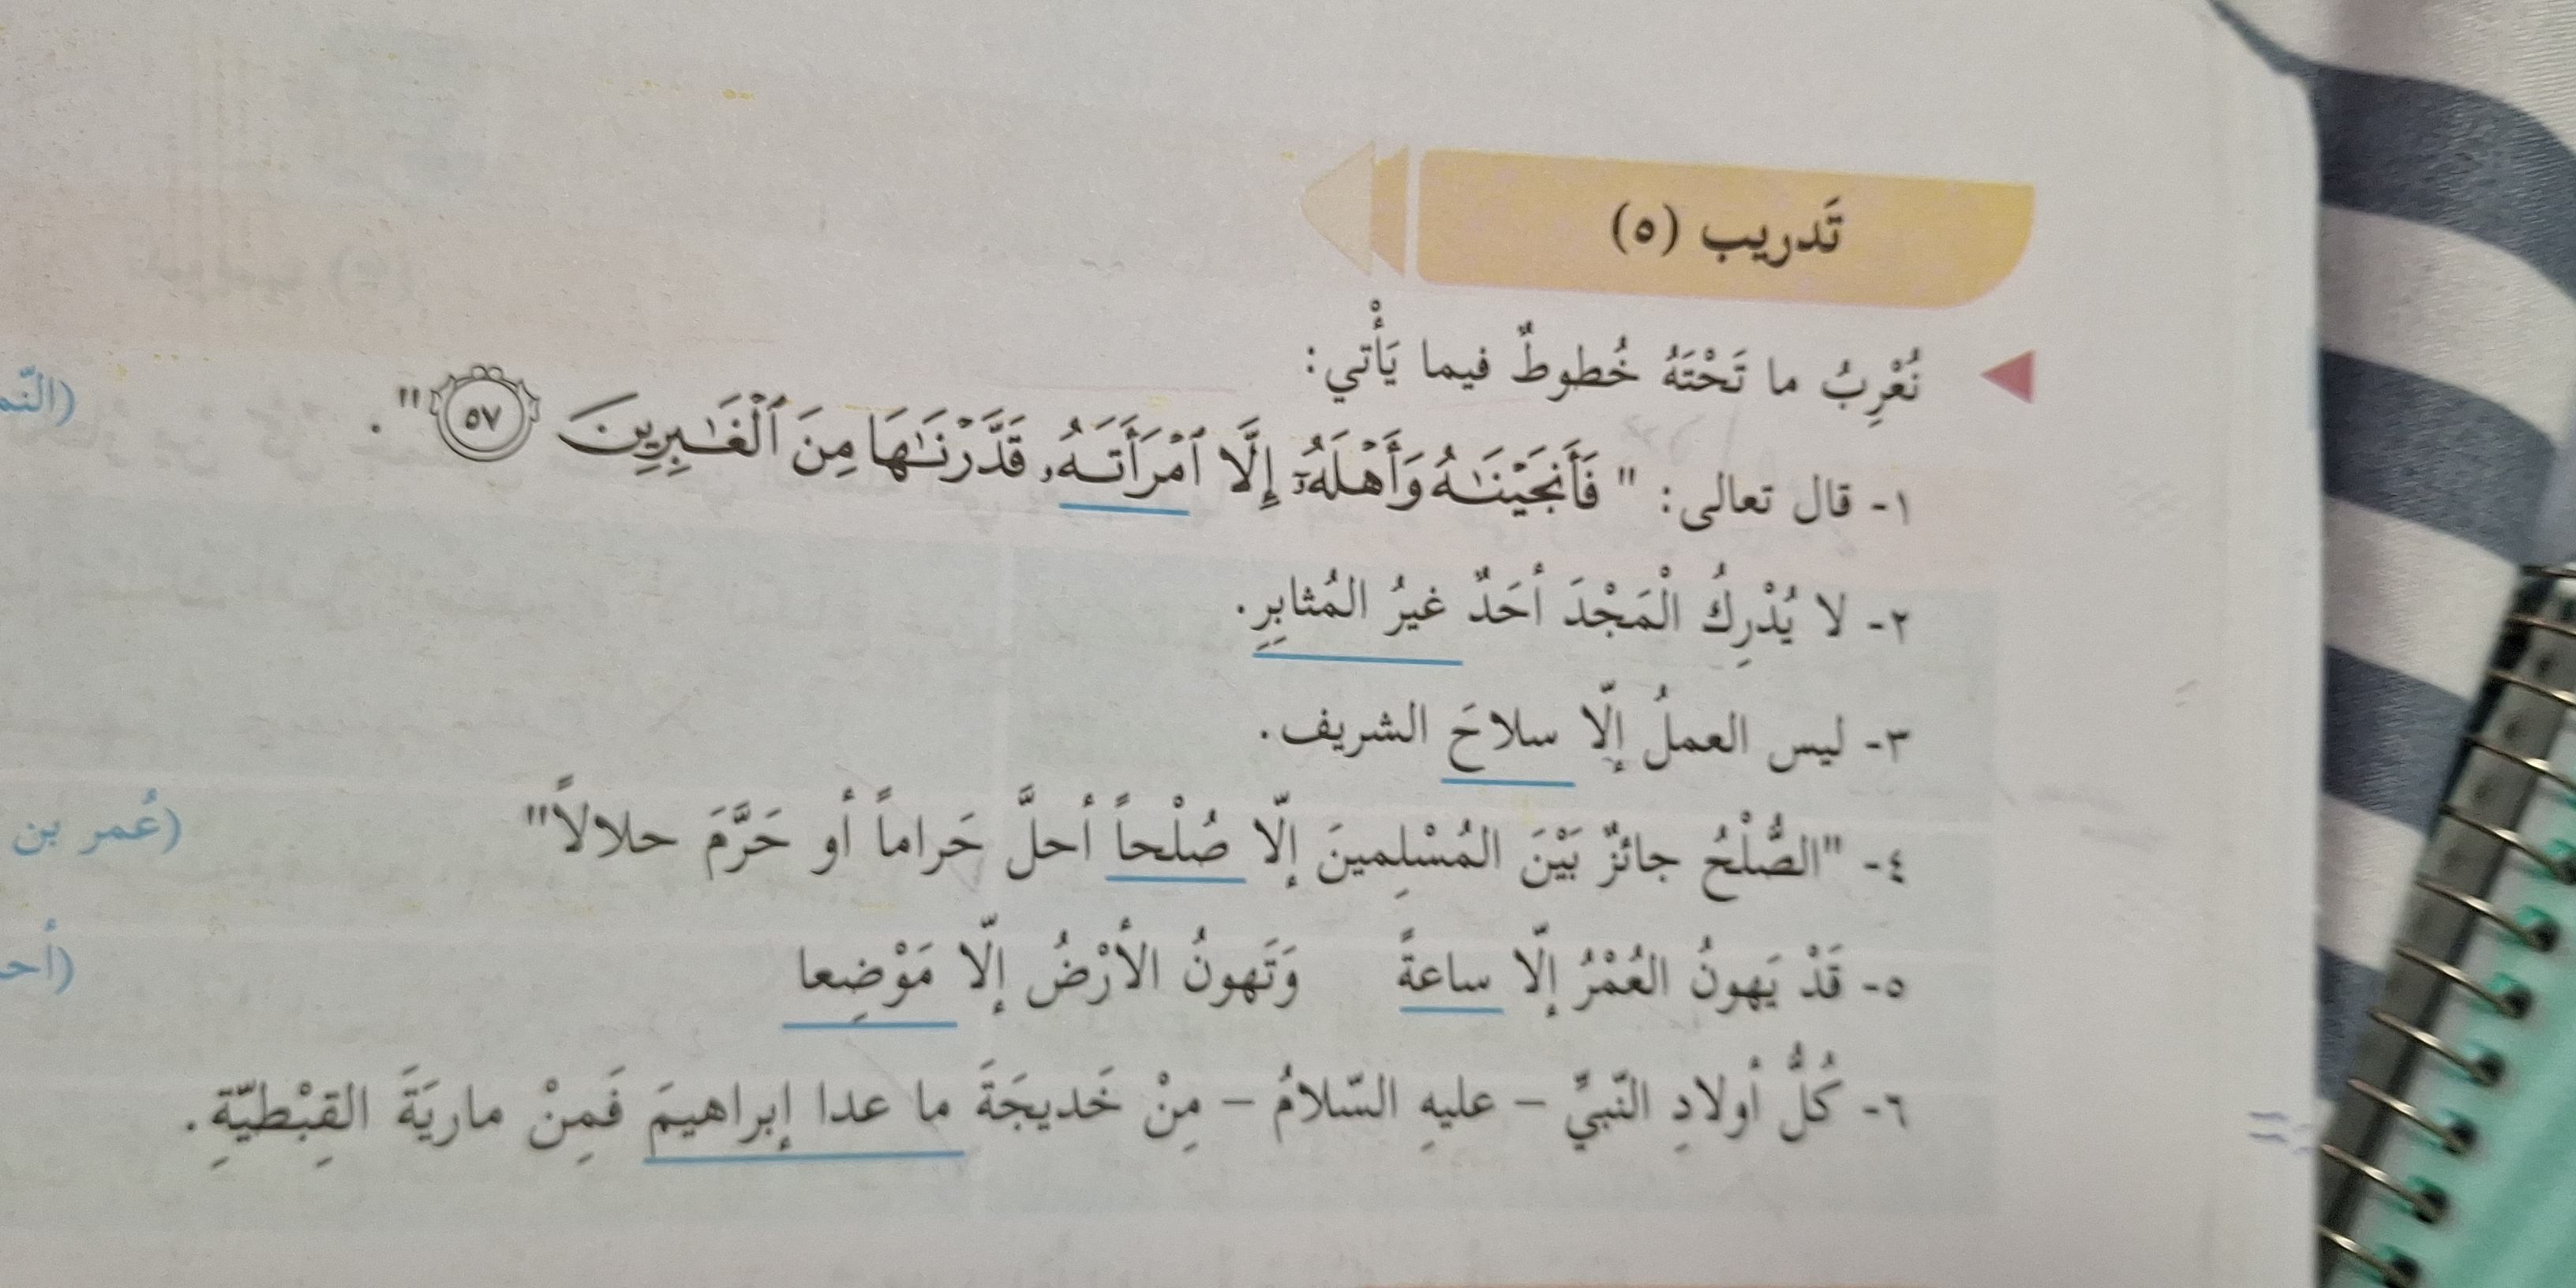 تَدريب (٥)
نُعْرِبُ ما تَحْتَهُ خُطوطٌ فيما يَأْتي:
١- قال تعالى: " فَأَنجَيْنَٰهُ وَأَهْلَهُۥٓ إِلَّا ٱمْرَأَتَهُۥ قَدَّرْنَٰهَا مِنَ ٱلْغَٰبِرِينَ ٥٧ ". (النّم
٢- لا يُدْرِكُ الْمَجْدَ أحَدٌ غيرُ المُثابِرِ.
٣- ليس العملُ إلّا سلاحَ الشريف.
٤- "الصُّلْحُ جائزٌ بَيْنَ المُسْلِمينَ إلّا صُلْحاً أحلَّ حَراماً أو حَرَّمَ حلالاً" (عُمر بن
٥- قَدْ يَهونُ العُمْرُ إلّا ساعةً وَتَهونُ الأَرْضُ إلّا مَوْضِعا (أحـ
٦- كُلُّ أولادِ النّبيِّ – عليهِ السّلامُ – مِنْ خَديجَةَ ما عدا إبراهيمَ فَمِنْ ماريَةَ القِبْطيّةِ.